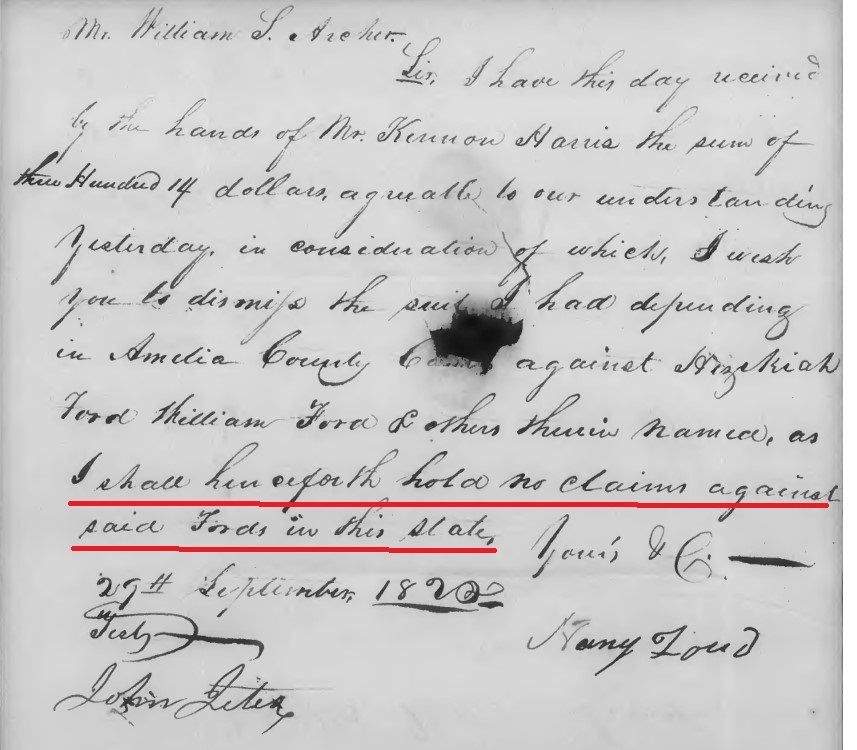 Mr. William S. Archer.
Sir, I have this day received
by the hands of Mr. Kennon Harris the sum of
three Hundred 14 dollars, agreable to our understanding
Yesterday, in consideration of which, I wish
you to dismiss the suit I had depending
in Amelia County against Hezekiah
Ford William Ford & others therein named, as
I shall henceforth hold no claims against
said Fords in this state,
Yours & C.
27th September, 1822
Test
Nancy Ford
John